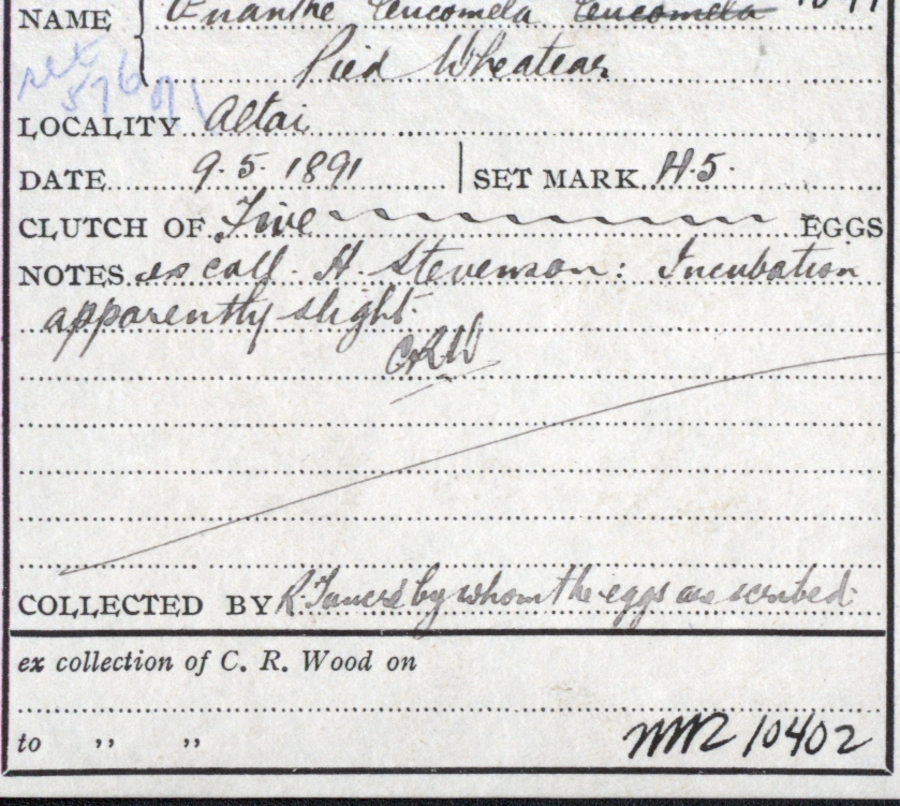 NAME Oenanthe leucomela leucomela
Pied Wheatear
LOCALITY Altai
DATE 9.5.1891 SET MARK H.5.
CLUTCH OF Five EGGS
NOTES ex coll. H. Stevenson: Incubation
apparently slight.
CRW
COLLECTED BY R. Tancré by whom the eggs are scribed.
ex collection of C. R. Wood on
to ,, ,,
10402